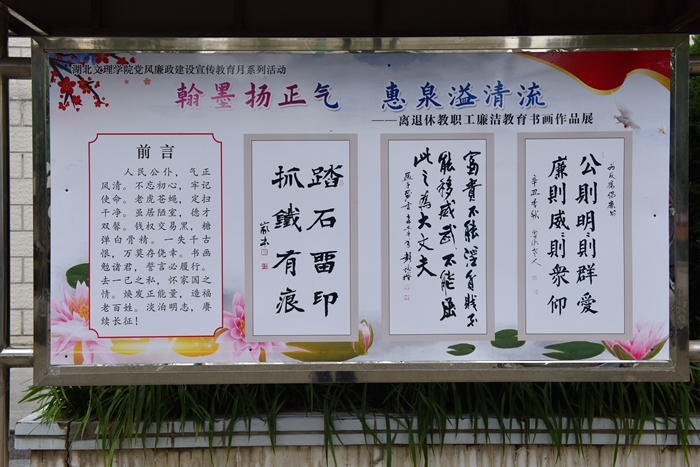 湖北文理学院党风廉政建设宣传教育月系列活动
翰墨扬正气 惠泉溢清流
——离退休教职工廉洁教育书画作品展
前言
人民公仆，气正
风清。不忘初心，牢记
使命。老虎苍蝇，定扫
干净。虽居陋室，德才
双馨。钱权交易黑，糖
弹白骨精。一失千古
恨，万莫存侥幸。书画
勉诸君，誓言必履行。
去一己之私，怀家国之
情。焕发正能量，造福
老百姓。淡泊明志，赓
续长征！
踏石畱印
抓鐵有痕
富貴不能淫貧賤不
能移威武不能屈
此之為大丈夫
公則明則群愛
廉則威則衆仰